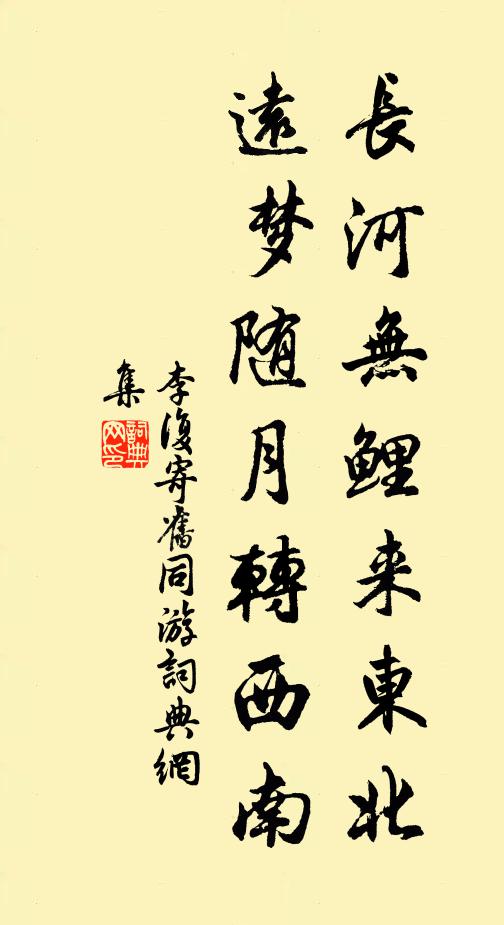 長河無鯉来東北
遠梦随月轉西南
李復寄舊同游詞典網
集
詞典网印